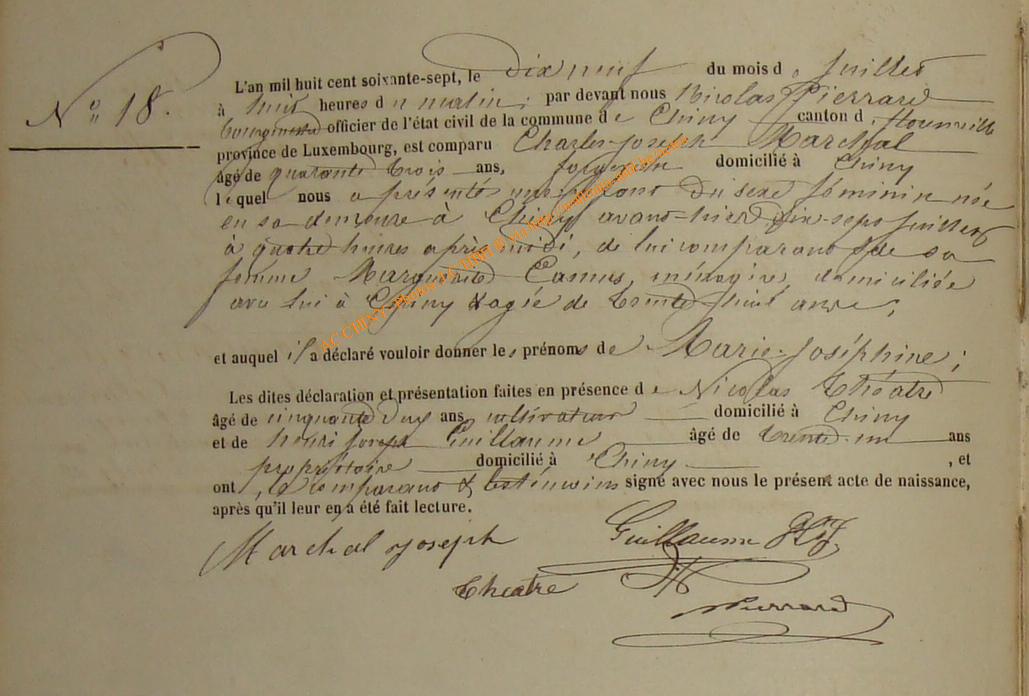 N° 18.
L'an mil huit cent soixante-sept, le dix neuf du mois de Juillet
à huit heures du matin; par devant nous Nicolas Pierrard
bourgmestre officier de l'état civil de la commune de Chiny canton d
province de Luxembourg, est comparu Charles-Joseph Marchal
âgé de quarante trois ans, forgeron domicilié à Chiny
lequel nous a présenté un enfant du sexe féminin née
en sa demeure à Chiny avant-hier dix-sept Juillet
à quatre heures après midi, de lui comparant & de sa
femme Marguerite Camus, ménagère, domiciliée
avec lui à Chiny & agée de trente-huit ans;
et auquel il a déclaré vouloir donner les prénoms de Marie-Joséphine;
Les dites déclaration et présentation faites en présence de Nicolas Théatre
âgé de cinquante deux ans cultivateur domicilié à Chiny
et de henri Joseph Guillaume âgé de trente-un ans
propriétaire domicilié à Chiny , et
ont, le comparant & les témoins signé avec nous le présent acte de naissance,
après qu'il leur en a été fait lecture.
Marchal Joseph Guillaume
Théatre
Pierrard